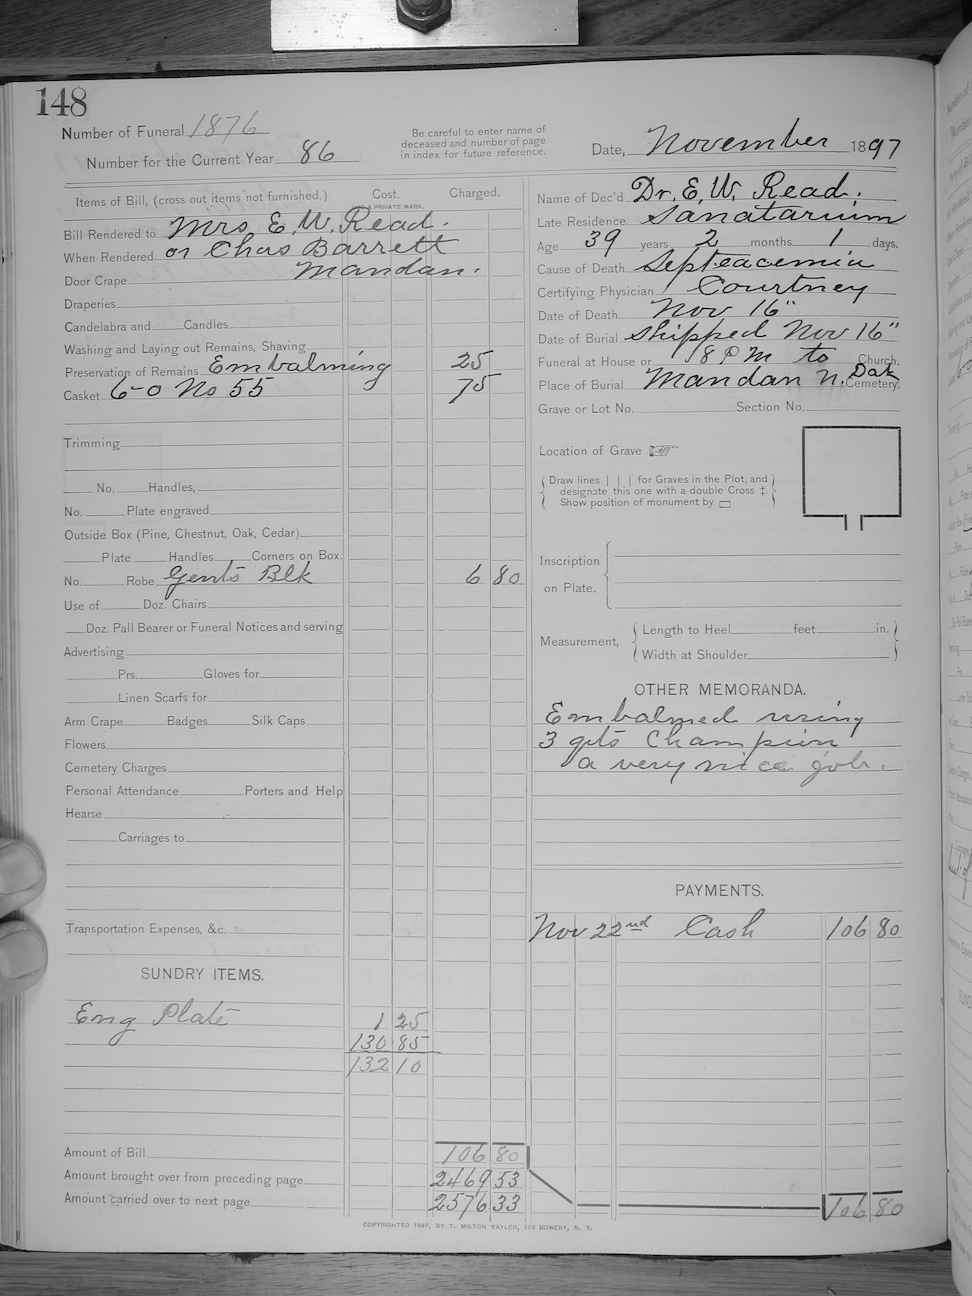 148
Number of Funeral 1876
Number for the Current Year 86
Be careful to enter name of
deceased and number of page
in index for future reference.
Date, November 1897
Items of Bill, (cross out items not furnished.) Cost. Charged.
USE A PRIVATE MARK.
Bill Rendered to Mrs E. W. Read.
When Rendered or Chas Barrett
Door Crape Mandan.
Draperies
Candelabra and Candles
Washing and Laying out Remains, Shaving
Preservation of Remains Embalming 25
Casket 6-0 No 55 75
Trimming
No. Handles,
No. Plate engraved
Outside Box (Pine, Chestnut, Oak, Cedar)
Plate Handles Corners on Box.
No. Robe Gents Blk 6 80
Use of Doz. Chairs
Doz. Pall Bearer or Funeral Notices and serving
Advertising
Prs. Gloves for
Linen Scarfs for
Arm Crape Badges Silk Caps
Flowers
Cemetery Charges
Personal Attendance Porters and Help
Hearse
Carriages to
Transportation Expenses, &c.
SUNDRY ITEMS.
Eng Plate 1 25
130 85
132 10
Amount of Bill 106 80
Amount brought over from preceding page 2469 53
Amount carried over to next page 2576 33
Name of Dec'd Dr. E. W. Read.
Late Residence Sanatarium
Age 39 years 2 months 1 days.
Cause of Death Septeacemia
Certifying Physician Courtney
Date of Death Nov 16"
Date of Burial shipped Nov 16"
Funeral at House or 8 PM to Church.
Place of Burial Mandan N. Dak Cemetery.
Grave or Lot No. Section No.
Location of Grave
Draw lines | | | for Graves in the Plot, and
designate this one with a double Cross ‡.
Show position of monument by ▭
Inscription
on Plate.
Measurement,
Length to Heel feet in.
Width at Shoulder
OTHER MEMORANDA.
Embalmed using
3 qts Champion
a very nice job.
PAYMENTS.
Nov 22nd Cash 106 80
106 80
COPYRIGHTED 1890, BY T. MILTON TAYLOR, 183 BOWERY, N. Y.